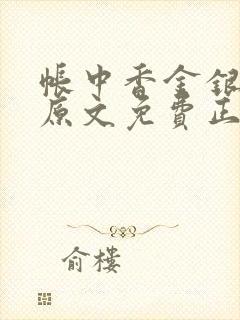 帳中香金銀
原文免費正
俞樓